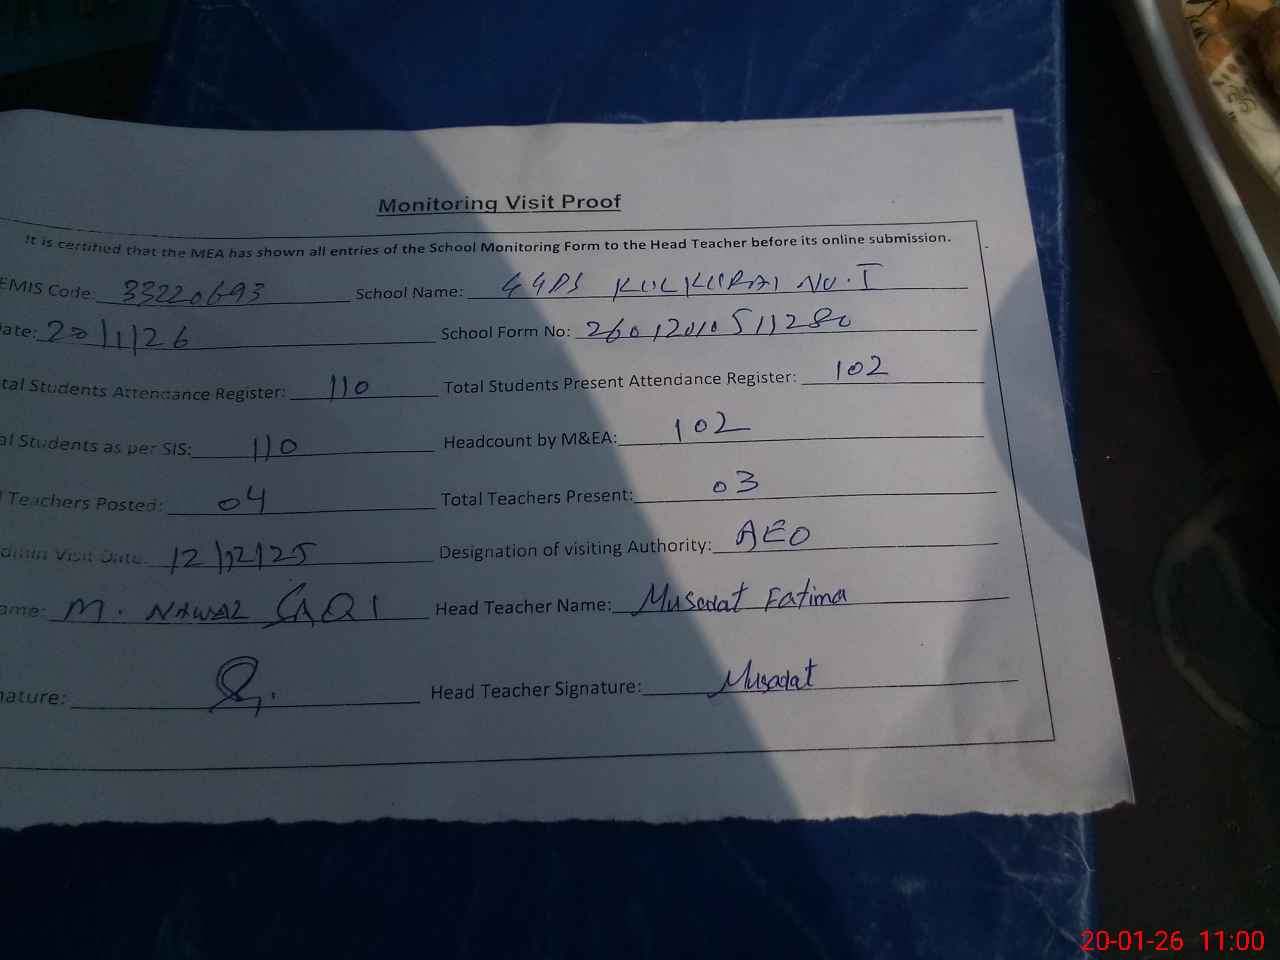 Monitoring Visit Proof
It is certified that the MEA has shown all entries of the School Monitoring Form to the Head Teacher before its online submission.
EMIS Code: 33220693 School Name: GGPS KULKURAI NO. I
ate: 20/1/26 School Form No:
tal Students Attendance Register: 110 Total Students Present Attendance Register: 102
al Students as per SIS: 110 Headcount by M&EA: 102
Teachers Posted: 04 Total Teachers Present: 03
dmin Visit Date: 12/12/25 Designation of visiting Authority: AEO
ame: M. NAWAZ SAQI Head Teacher Name: Musadat Fatima
nature: Head Teacher Signature: Musadat
20-01-26 11:00